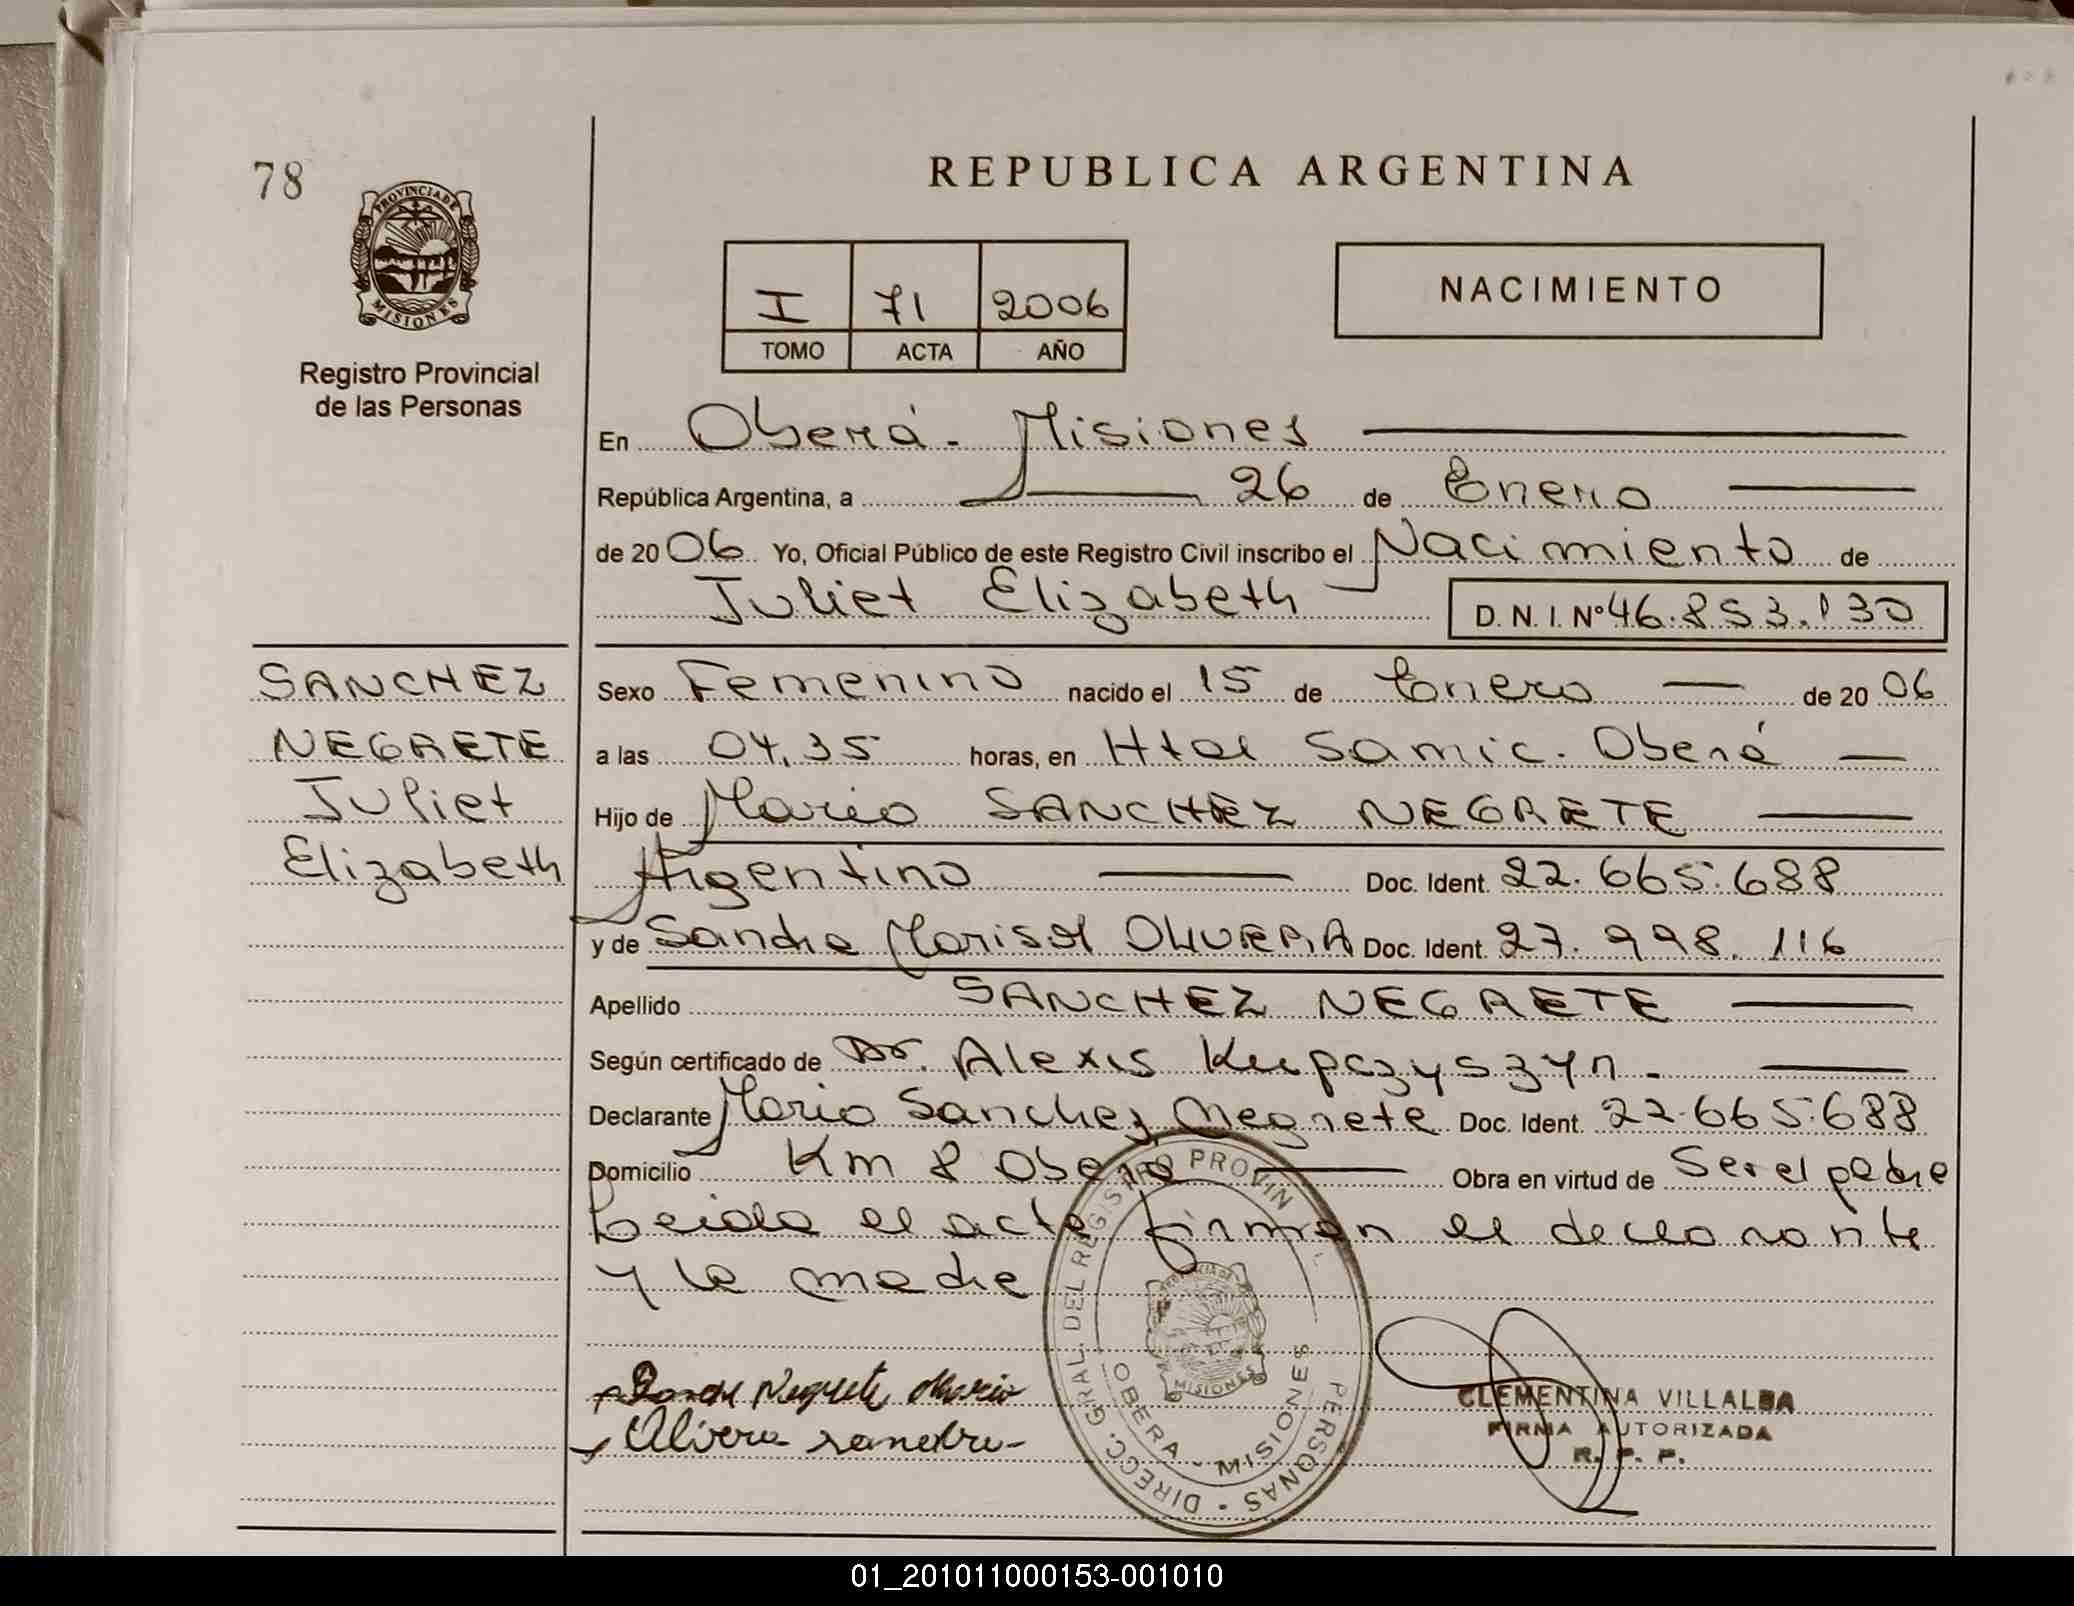 78
PROVINCIA DE
MISIONES
Registro Provincial
de las Personas
REPUBLICA ARGENTINA
I 71 2006
TOMO ACTA AÑO
NACIMIENTO
En Oberá - Misiones
República Argentina, a 26 de Enero
de 20 06 Yo, Oficial Público de este Registro Civil inscribo el Nacimiento de
Juliet Elizabeth D. N. I. Nº 46.853.130
SANCHEZ
NEGRETE
Juliet
Elizabeth
Sexo Femenino nacido el 15 de Enero de 20 06
a las 04,35 horas, en Htal Samic. Oberá
Hijo de Mario SANCHEZ NEGRETE
Argentino Doc. Ident. 22.665.688
y de Sandra Marisol OLIVERA Doc. Ident. 27.998.116
Apellido SANCHEZ NEGRETE
Según certificado de Dr. Alexis Kupczyszyn.
Declarante Mario Sanchez Negrete Doc. Ident. 22.665.688
Domicilio Km 8 Oberá Obra en virtud de Ser el padre
Leida el acta firman el declarante
y la madre
Negrete Mario
Olivera sandra
DIRECC. GRAL. DEL REGISTRO PROVIN PERSONAS
OBERA - MISIONES
MISIONES
CLEMENTINA VILLALBA
FIRMA AUTORIZADA
R. P. P.
01_201011000153-001010